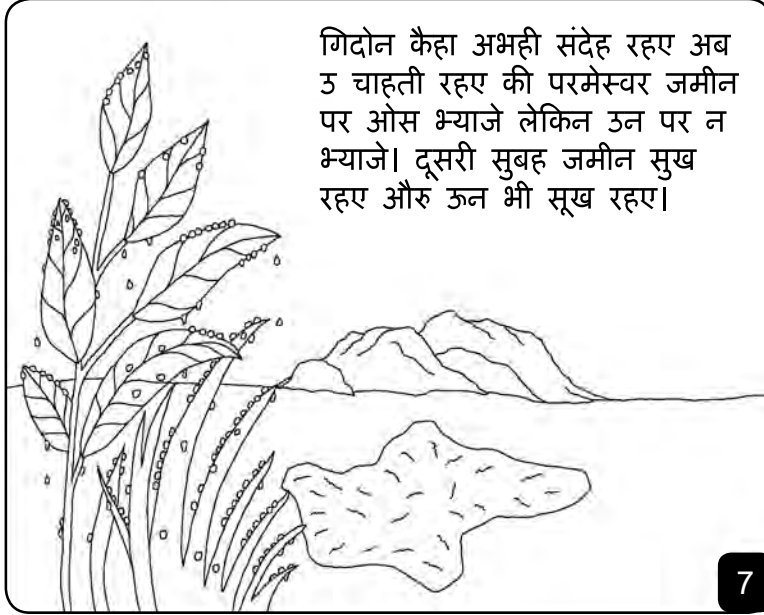 गिदोन कैहा अभही संदेह रहए अब
उ चाहती रहए की परमेस्वर जमीन
पर ओस भ्याजे लेकिन उन पर न
भ्याजे। दूसरी सुबह जमीन सुख
रहए औरु ऊन भी सूख रहए।
7